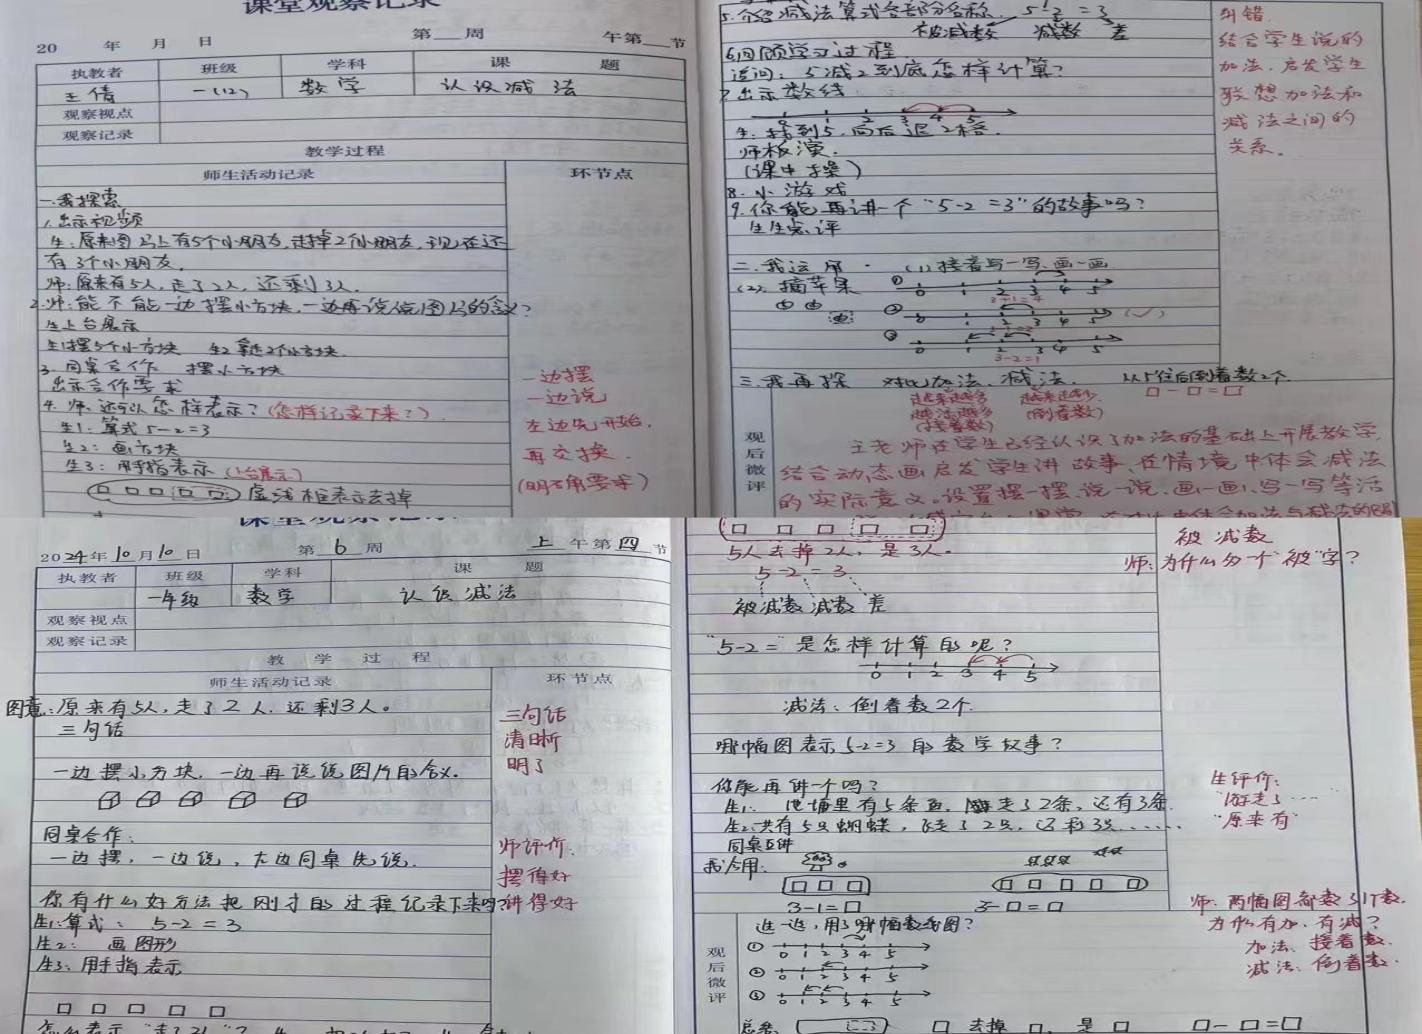 课堂观察记录
20 年 月 日 第 周 午第 节
执教者 班级 学科 课 题
王倩 一(12) 数学 认识减法
观察视点
观察记录
教学过程
师生活动记录 环节点
一.我探索
1.出示视频
生:原来图上有5个小朋友,走掉2个小朋友,现在还
有3个小朋友.
师:原来有5人,走了2人,还剩3人.
2.师:能不能一边摆小方块,一边再说说图的含义?
生上台展示
生1摆5个小方块 生2拿走2个小方块.
3.同桌合作 摆小方块
出示合作要求
4.师:还可以怎样表示?(怎样记录下来?)
生1:算式5-2=3
生2:画方块
生3:用手指表示(上台展示)
虚线框表示去掉
一边摆
一边说
左边先开始,
再交换.
(明确要求)
5.介绍减法算式各部分名称. 5-2=3
被减数 减数 差
6.回顾学习过程
追问:5减2到底怎样计算?
7.出示数线
0 1 2 3 4 5
生:找到5,向后退2格.
师板演.
(课中操)
8.小游戏
9.你能再讲一个“5-2=3”的故事吗?
生生点评
二.我运用. (1)接着写一写.画一画
(2).摘苹果 ① 0 1 2 3 4 5
3+1=4
② 0 1 2 3 4 5 (✓)
③ 0 1 2 3 4 5
3-2=1
三.我再探 对比加法、减法. 从5往后倒着数2个.
越来越多 越来越少. □-□=□
(接着数) (倒着数)
纠错.
结合学生说的
加法,启发学生
联想加法和
减法之间的
关系.
观后微评
王老师在学生已经认识了加法的基础上开展教学,
结合动态画启发学生讲故事,在情境中体会减法
的实际意义。设置摆一摆、说一说、画一画、写一写等活
课堂观察记录
2024年10月10日 第6周 上午第四节
执教者 班级 学科 课 题
一年级 数学 认识减法
观察视点
观察记录
教学过程
师生活动记录 环节点
图意:原来有5人,走了2人,还剩3人。
三句话
一边摆小方块,一边再说说图片的含义.
同桌合作:
一边摆,一边说,左边同桌先说.
你有什么好方法把刚才的过程纪录下来吗?
生1:算式:5-2=3
生2: 画图形
生3:用手指表示
□ □ □ □ □
三句话
清晰
明了
师评价:
摆得好
讲得好
5人去掉2人,是3人.
5-2=3
被减数 减数 差
“5-2=”是怎样计算的呢?
0 1 2 3 4 5
减法:倒着数2个.
哪幅图表示5-2=3的数学故事?
你能再讲一个吗?
生1: 池塘里有5条鱼,游走了2条,还有3条.
生2:共有5只蝴蝶,飞走了2只,还剩3只......
同桌互讲
我会用:
3-1=□ 3-□=□
观后微评
选一选,用了哪幅数线图?
① 0 1 2 3 4 5
② 0 1 2 3 4 5
③ 0 1 2 3 4 5
总结: □去掉□,是□ □-□=□
被减数
师:为什么多一个“被”字?
生评价:
“游走了……
“原来有”
师:两幅图都数了1个数,
为什么有加、有减?
加法:接着数.
减法:倒着数.